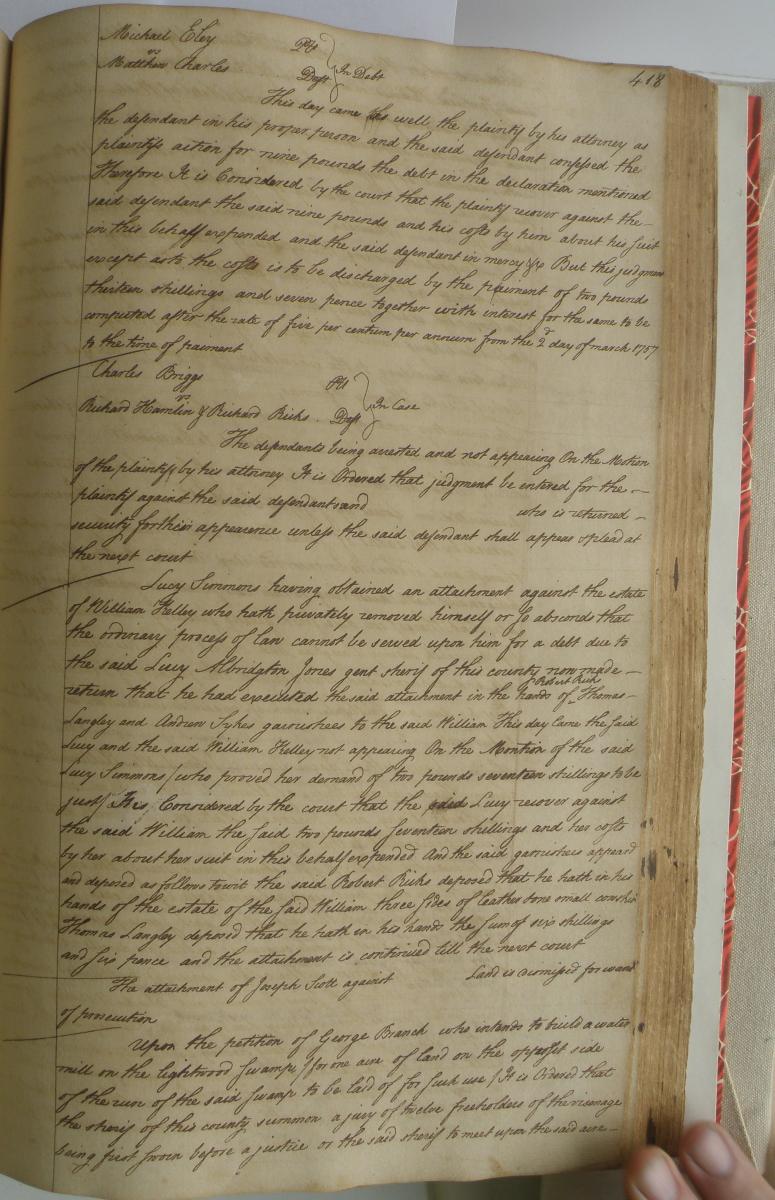 418
Michael Eley Plt
vs In Debt
Matthew Charles Deft
This day came as well the plaintif by his attorney as
the defendant in his proper person and the said defendant confessed the
plaintifs action for nine pounds the debt in the declaration mentioned
Therefore It is Considered by the court that the plaintif recover against the
said defendant the said nine pounds and his costs by him about his suit
in this behalf expended and the said defendant in mercy &c But this judgment
except as to the costs is to be discharged by the paiment of two pounds
thirteen shillings and seven pence together with interest for the same to be
computed after the rate of five per centum per annum from the 2d day of march 1757
to the time of paiment
Charles Briggs Plt
vs In Case
Richard Hamlin & Richard Ricks Deft
The defendants being arrested and not appearing On the Motion
of the plaintif by his attorney It is Ordered that judgment be entered for the
plaintif against the said defendants and who is returned
security for their appearence unless the said defendant shall appear & plead at
the next court
Lucy Simmons having obtained an attachment against the estate
of William Kelley who hath privately removed himself or so absconds that
the ordinary process of law cannot be served upon him for a debt due to
the said Lucy Albridgton Jones gent sherif of this county now made
return that he had executed the said attachment in the hands of Robert Ricks Thomas
Langley and Andrew Sykes garnishees to the said William This day Came the said
Lucy and the said William Kelley not appearing On the Montion of the said
Lucy Simmons (who proved her demand of two pounds seventeen shillings to be
just) It is Considered by the court that the said Lucy recover against
the said William the said two pounds seventeen shillings and her costs
by her about her suit in this behalf expended And the said garnishees appeard
and deposed as follows towit the said Robert Ricks deposed that he hath in his
hands of the estate of the said William three sides of leather some small
Thomas Langley deposed that he hath in his hands the sum of six shillings
and six pence and the attachment is continued till the next court
The attachment of Joseph Scott against Land is dismissed for want
of prosecution
Upon the petition of George Branch who intends to build a water
mill on the lightwood swamp (for one acre of land on the opposit side
of the run of the said swamp to be laid of for such use) It is Ordered that
the sherif of this county summon a jury of twelve freeholders of the vicenage
being first sworn before a justice or the said sherif to meet upon the said acre